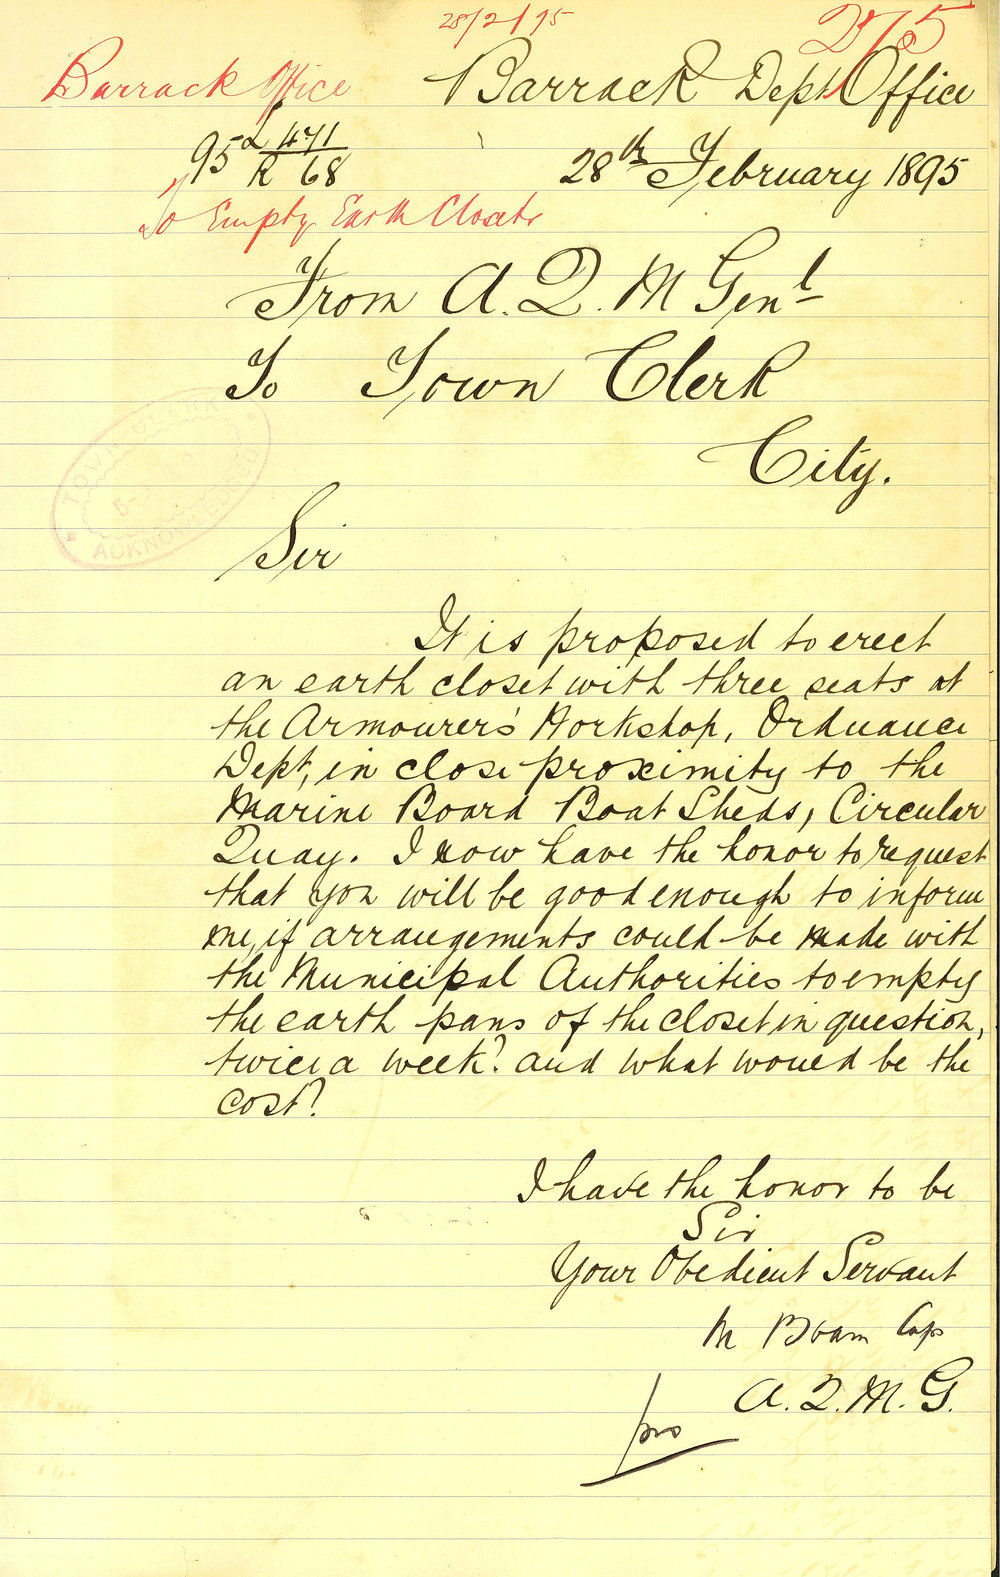 28/2/95
Barrack Office
Barrack Dept Office
95 2 471
R 68
28th February 1895
To Empty Earth Closets
From A. Q. M Genl
To Town Clerk
City.
TOWN
ACKNOWLEDGED
Sir
It is proposed to erect
an earth closet with three seats at
the Armourer's Workshop, Ordnance
Dept, in close proximity to the
Marine Board Boat Sheds, Circular
Quay. I now have the honor to request
that you will be good enough to inform
me, if arrangements could be made with
the Municipal Authorities to empty
the earth pans of the closet in question,
twice a week? and what would be the
cost?
I have the honor to be
Sir
Your Obedient Servant
M Boam Cap
pro A. Q. M. G.